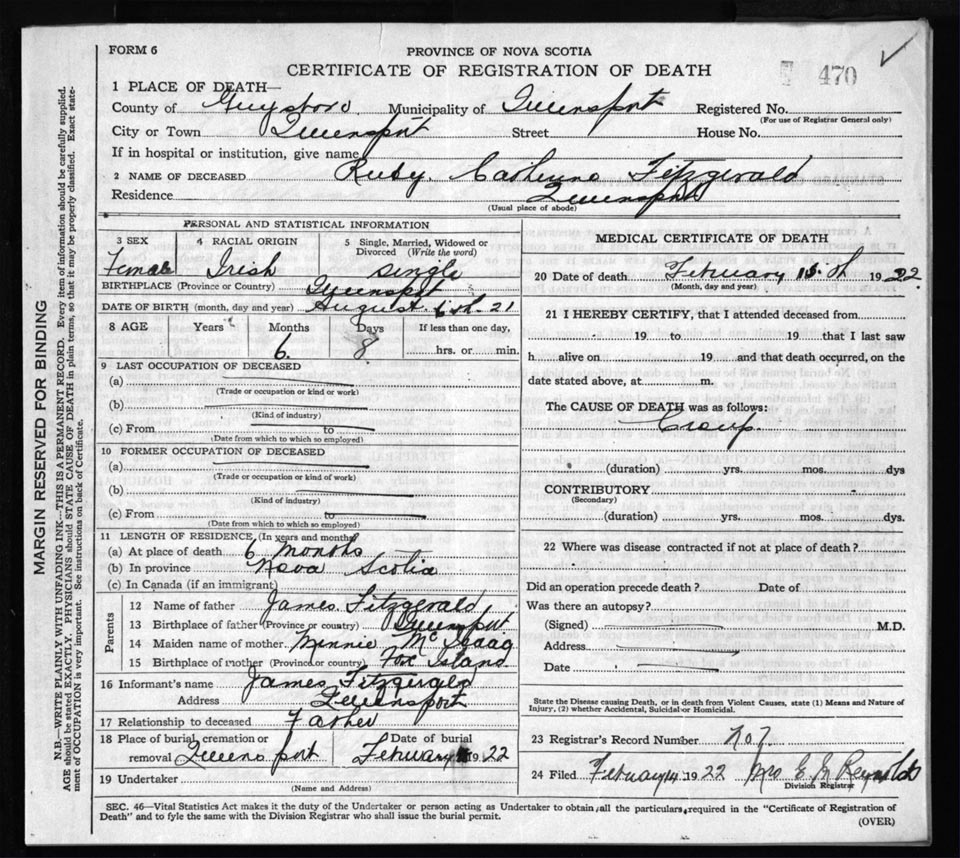 FORM 6
PROVINCE OF NOVA SCOTIA
CERTIFICATE OF REGISTRATION OF DEATH
470
1 PLACE OF DEATH—
County of Guysboro Municipality of Queensport Registered No.
(For use of Registrar General only)
City or Town Queensport Street House No.
If in hospital or institution, give name
2 NAME OF DECEASED Ruby Catherine Fitzgerald
Residence Queensport
(Usual place of abode)
PERSONAL AND STATISTICAL INFORMATION
3 SEX 4 RACIAL ORIGIN 5 Single, Married, Widowed or Divorced (Write the word)
Female Irish single
BIRTHPLACE (Province or Country) Queensport
DATE OF BIRTH (month, day and year) August 6th. 21
8 AGE Years Months Days If less than one day,
6 8 hrs. or min.
9 LAST OCCUPATION OF DECEASED
(a)
(Trade or occupation or kind or work)
(b)
(Kind of industry)
(c) From to
(Date from which to which so employed)
10 FORMER OCCUPATION OF DECEASED
(a)
(Trade or occupation or kind of work)
(b)
(Kind of industry)
(c) From to
(Date from which to which so employed)
11 LENGTH OF RESIDENCE (In years and months)
(a) At place of death 6 months
(b) In province Nova Scotia
(c) In Canada (if an immigrant)
Parents
12 Name of father James Fitzgerald
13 Birthplace of father (Province or country) Queensport
14 Maiden name of mother Minnie McIsaac
15 Birthplace of mother (Province or country) Fox Island
16 Informant's name James Fitzgerald
Address Queensport
17 Relationship to deceased Father
18 Place of burial, cremation or removal Queensport Date of burial February 1922
19 Undertaker
(Name and Address)
MEDICAL CERTIFICATE OF DEATH
20 Date of death February th 1922.
(Month, day and year)
21 I HEREBY CERTIFY, that I attended deceased from
19 to 19 that I last saw
h alive on 19 and that death occurred, on the
date stated above, at m.
The CAUSE OF DEATH was as follows:
Croup.
(duration) yrs. mos. dys
CONTRIBUTORY
(Secondary)
(duration) yrs. mos. dys.
22 Where was disease contracted if not at place of death?
Did an operation precede death? Date of
Was there an autopsy?
(Signed) M.D.
Address
Date
State the Disease causing Death, or in death from Violent Causes, state (1) Means and Nature of
Injury, (2) whether Accidental, Suicidal or Homicidal.
23 Registrar's Record Number 207
24 Filed February 14 1922 Mrs E. G. Reynolds
Division Registrar
SEC. 46—Vital Statistics Act makes it the duty of the Undertaker or person acting as Undertaker to obtain all the particulars required in the "Certificate of Registration of
Death" and to fyle the same with the Division Registrar who shall issue the burial permit.
(OVER)
MARGIN RESERVED FOR BINDING
N.B.—WRITE PLAINLY WITH UNFADING INK—THIS IS A PERMANENT RECORD. Every item of information should be carefully supplied.
AGE should be stated EXACTLY. PHYSICIANS should STATE CAUSE OF DEATH in plain terms, so that it may be properly classified. Exact state-
ment of OCCUPATION is very important. See instructions on back of Certificate.